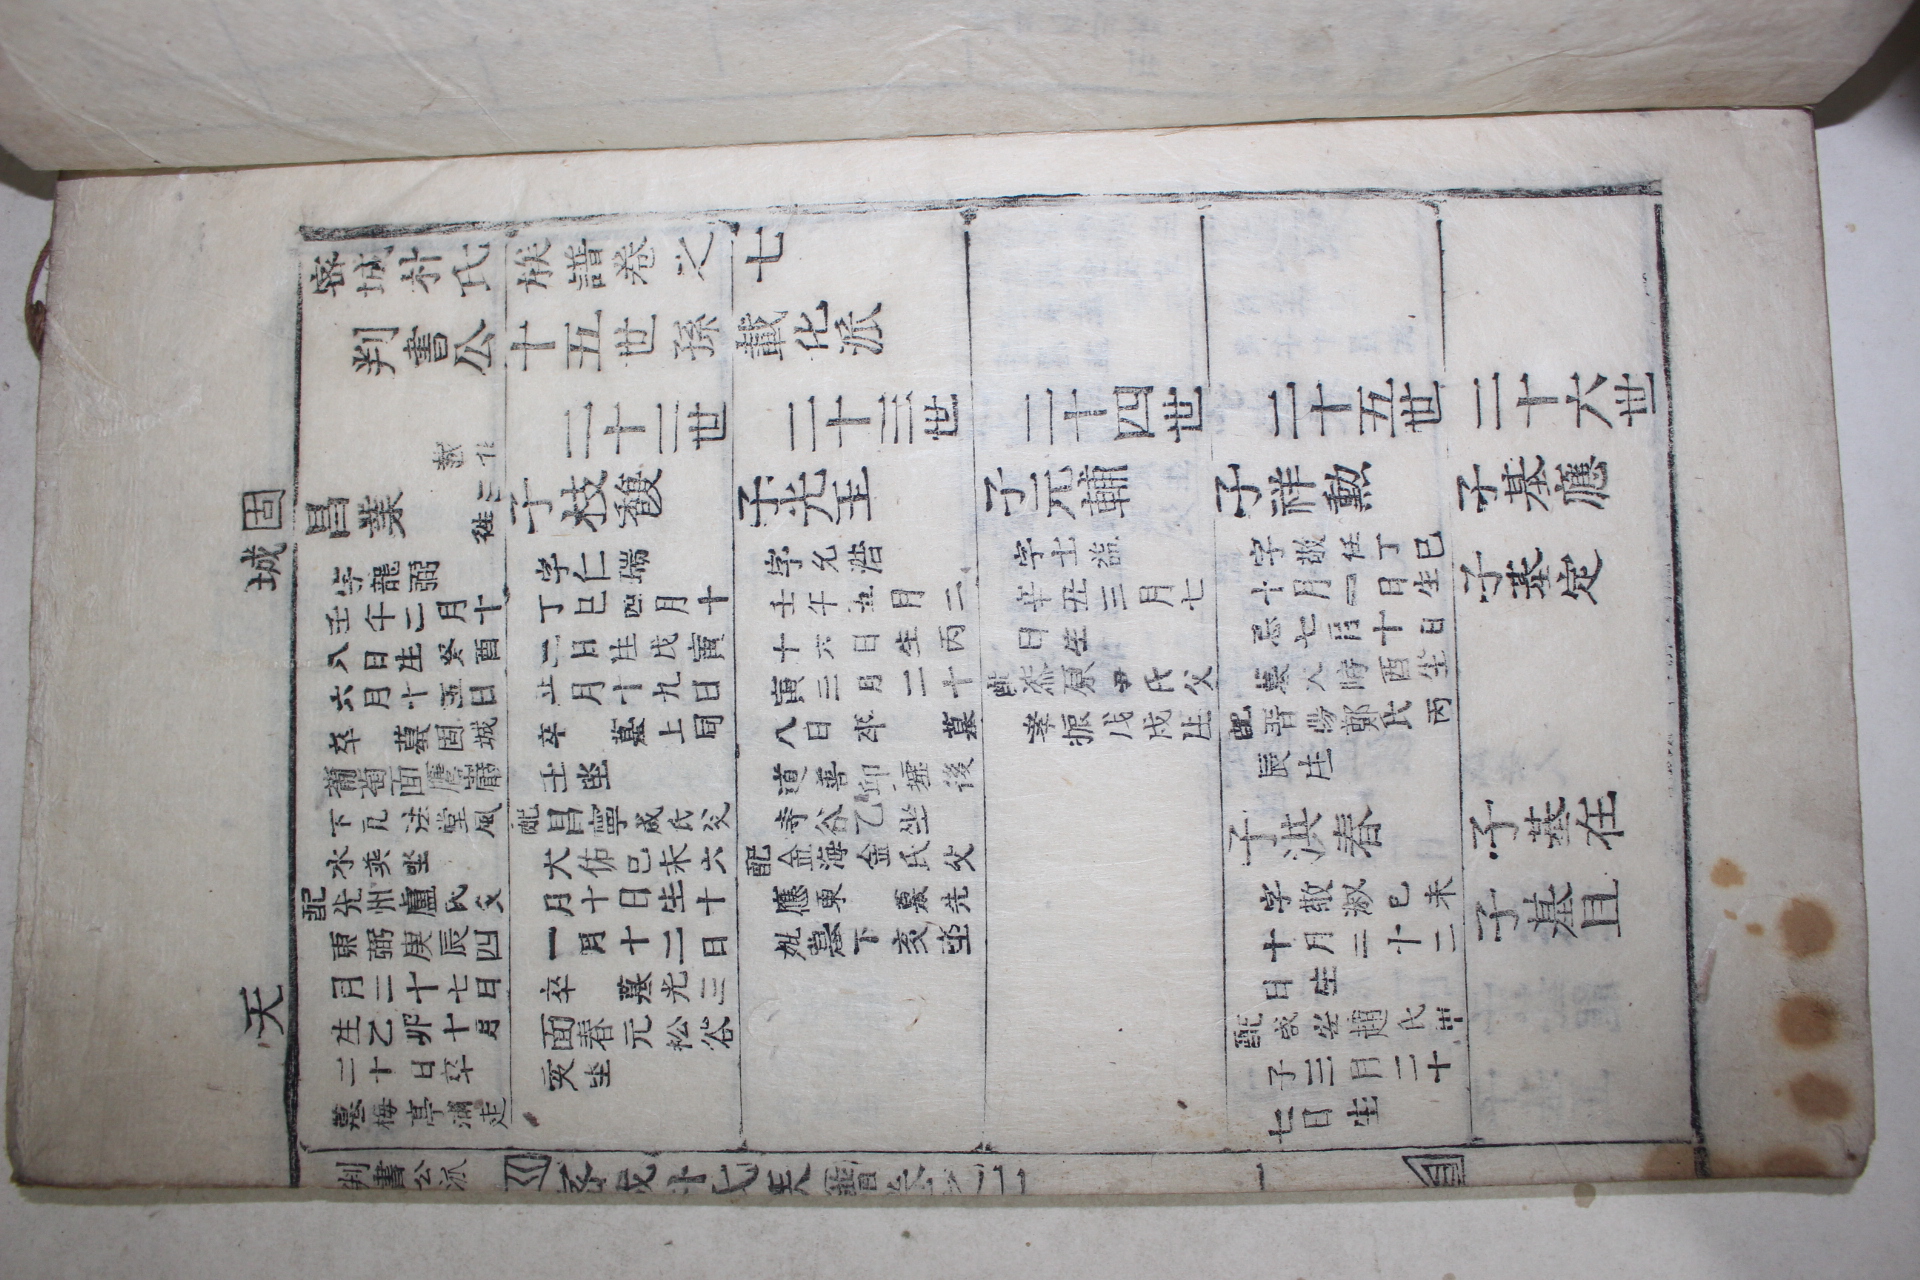 固城
天
密城朴氏族譜卷之七
判書公十五世孫載化派
昌業
字龍弼
壬午二月十
八日生癸酉
六月十五日
卒 墓固城
葡萄面鷹巖
下瓦法堂風
水英坐
配光州盧氏父
東弼庚辰四
月二十七日
生乙卯十月
二十日卒
墓梅亭浦走
二十二世
子枝馥
字仁瑞
丁巳四月十
二日生戊寅
正月十九日
卒 墓上同
壬坐
配昌寧成氏父
大佑己未六
月十日生十
一月十二日
卒 墓光三
面春元松谷
亥坐
二十三世
子光玉
字允浩
壬午五月二
十六日生丙
寅三月二十
八日卒 墓
道善邱墟後
寺谷乙坐
配金海金氏父
應東 墓先
妣墓下亥坐
二十四世
子元輔
字士益
辛丑三月七
日生
配漆原尹氏父
孝振戊戌生
二十五世
子祥勳
字敬任丁巳
十月一日生
忌七月十日
墓大時酉坐
配晋陽鄭氏丙
辰生
子洪春
字敬淑己未
十月二十二
日生
配咸安趙氏甲
子三月二十
七日生
二十六世
子基應
子基定
子基在
子基且
判書公派
密城朴氏族譜卷之七
一